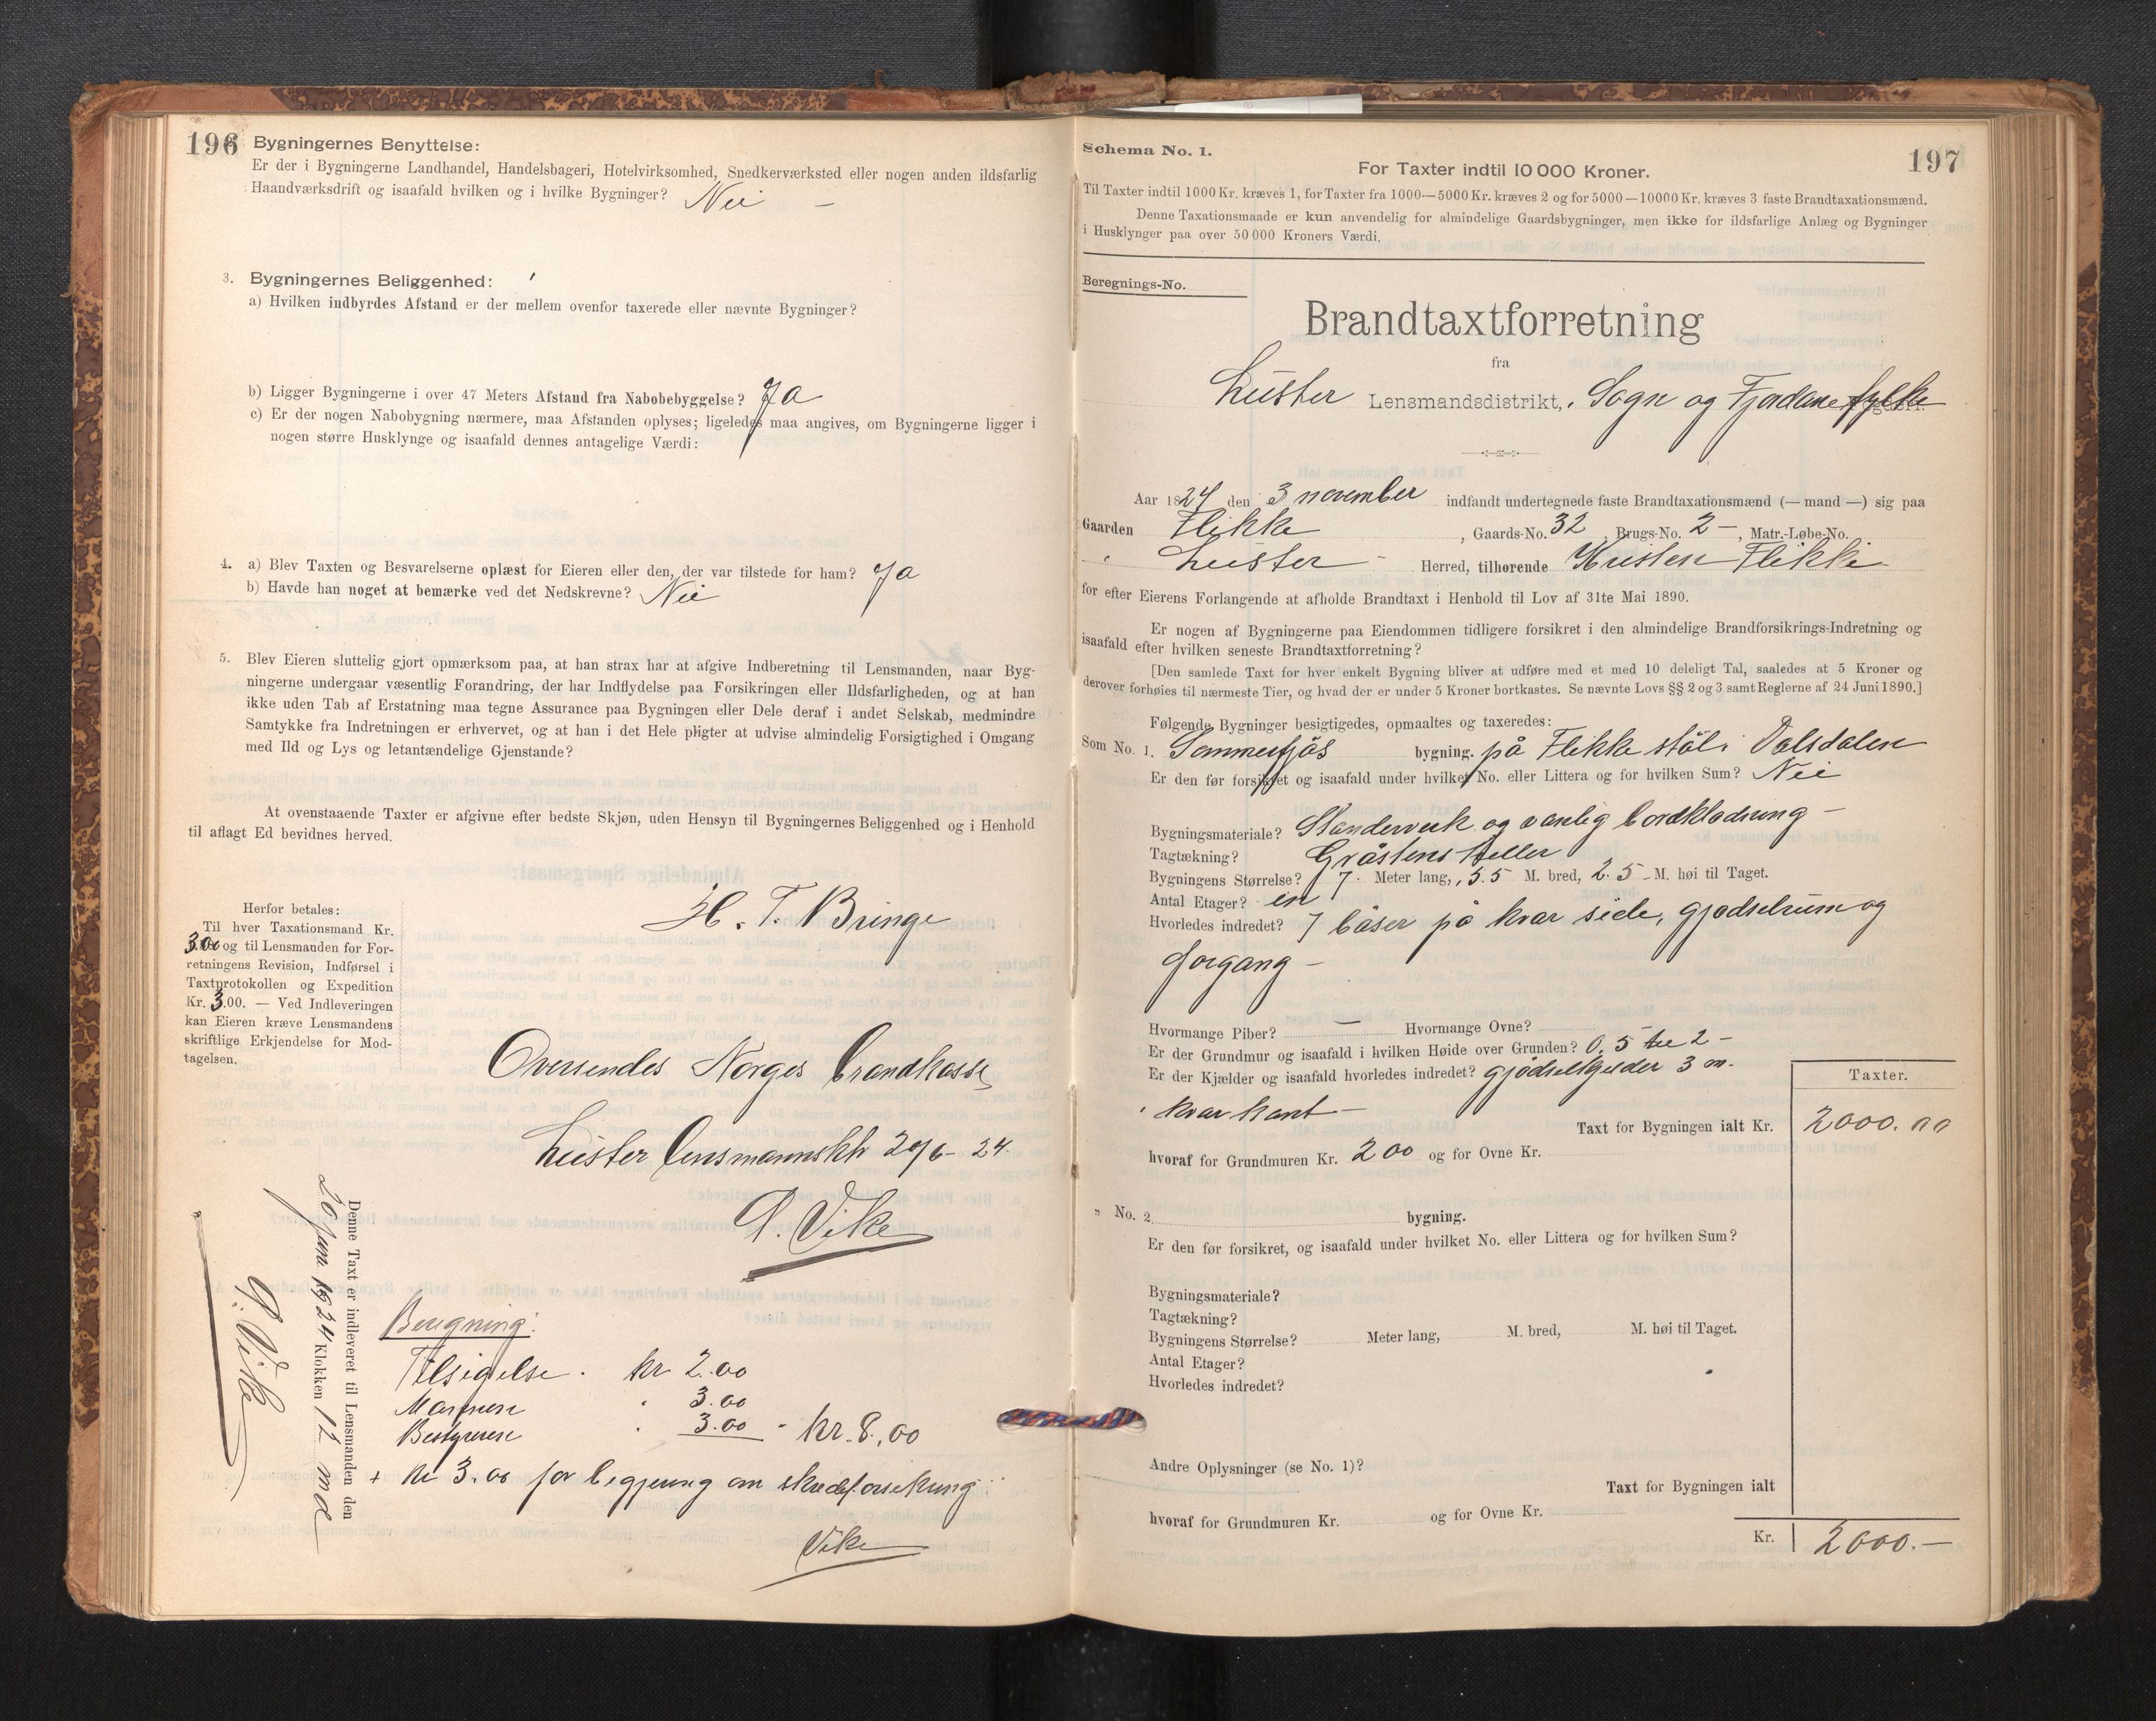 196
Bygningernes Benyttelse:
Er der i Bygningerne Landhandel, Handelsbageri, Hotelvirksomhed, Snedkerværksted eller nogen anden ildsfarlig
Haandværksdrift og isaafald hvilken og i hvilke Bygninger? Nei —
3. Bygningernes Beliggenhed:
a) Hvilken indbyrdes Afstand er der mellem ovenfor taxerede eller nævnte Bygninger?
b) Ligger Bygningerne i over 47 Meters Afstand fra Nabobebyggelse? Ja
c) Er der nogen Nabobygning nærmere, maa Afstanden oplyses; ligeledes maa angives, om Bygningerne ligger i
nogen større Husklynge og isaafald dennes antagelige Værdi:
4. a) Blev Taxten og Besvarelserne oplæst for Eieren eller den, der var tilstede for ham? Ja
b) Havde han noget at bemærke ved det Nedskrevne? Nei
5. Blev Eieren sluttelig gjort opmærksom paa, at han strax har at afgive Indberetning til Lensmanden, naar Byg-
ningerne undergaar væsentlig Forandring, der har Indflydelse paa Forsikringen eller Ildsfarligheden, og at han
ikke uden Tab af Erstatning maa tegne Assurance paa Bygningen eller Dele deraf i andet Selskab, medmindre
Samtykke fra Indretningen er erhvervet, og at han i det Hele pligter at udvise almindelig Forsigtighed i Omgang
med Ild og Lys og letantændelige Gjenstande?
At ovenstaaende Taxter er afgivne efter bedste Skjøn, uden Hensyn til Bygningernes Beliggenhed og i Henhold
til aflagt Ed bevidnes herved.
H. T. Bringe
Herfor betales:
Til hver Taxationsmand Kr.
3.00 og til Lensmanden for For-
retningens Revision, Indførsel i
Taxtprotokollen og Expedition
Kr. 3.00. — Ved Indleveringen
kan Eieren kræve Lensmandens
skriftlige Erkjendelse for Mod-
tagelsen.
Oversendes Norges brandkasse
Luster lensmannskh 20/6- 24.
P. Vike
Denne Taxt er indleveret til Lensmanden den
20 juni 1924 Klokken 12 md
P. Vike
Beregning:
Tilsigelse . kr 2.00
3.00
Bestyrere 3.00 - kr. 8,00
+ kr 3.00 for begjering om skredforsikring
Vike
Schema No. 1.
197
For Taxter indtil 10 000 Kroner.
Til Taxter indtil 1000 Kr. kræves 1, for Taxter fra 1000—5000 Kr. kræves 2 og for 5000—10000 Kr. kræves 3 faste Brandtaxationsmænd.
Denne Taxationsmaade er kun anvendelig for almindelige Gaardsbygninger, men ikke for ildsfarlige Anlæg og Bygninger
i Husklynger paa over 50 000 Kroners Værdi.
Beregnings-No.
Brandtaxtforretning
fra
Luster Lensmandsdistrikt, Sogn og Fjordane fylke
Aar 1824 den 3 november indfandt undertegnede faste Brandtaxationsmænd (— mand —) sig paa
Gaarden Flikke, Gaards-No. 32 Brugs-No. 2 —, Matr.-Løbe-No.
i Luster — Herred, tilhørende Kristen Flikke
for efter Eierens Forlangende at afholde Brandtaxt i Henhold til Lov af 31te Mai 1890.
Er nogen af Bygningerne paa Eiendommen tidligere forsikret i den almindelige Brandforsikrings-Indretning og
isaafald efter hvilken seneste Brandtaxtforretning?
[Den samlede Taxt for hver enkelt Bygning bliver at udføre med et med 10 deleligt Tal, saaledes at 5 Kroner og
derover forhøies til nærmeste Tier, og hvad der er under 5 Kroner bortkastes. Se nævnte Lovs §§ 2 og 3 samt Reglerne af 24 Juni 1890.]
Følgende Bygninger besigtigedes, opmaaltes og taxeredes:
Som No. 1. Sommerfjös bygning. på Flikke stöl i Dalsdalen
Er den før forsikret og isaafald under hvilket No. eller Littera og for hvilken Sum? Nei
Bygningsmateriale? Standerverk og vanlig bordkledning —
Tagtækning? Gråstens heller
Bygningens Størrelse? 7. Meter lang, 5.5 M. bred, 2.5 M. høi til Taget.
Antal Etager? en
Hvorledes indredet? 7 båser på kvar side, gjödselrum og
forgang —
Hvormange Piber? — Hvormange Ovne?
Er der Grundmur og isaafald i hvilken Høide over Grunden? 0.5 til 2 —
Er der Kjælder og isaafald hvorledes indredet? gjødselkjelder 3 m.
kvar kant —
Taxter.
Taxt for Bygningen ialt Kr. 2000.00
hvoraf for Grundmuren Kr. 200 og for Ovne Kr.
" No. 2 bygning.
Er den før forsikret, og isaafald under hvilket No. eller Littera og for hvilken Sum?
Bygningsmateriale?
Tagtækning?
Bygningens Størrelse? Meter lang, M. bred, M. høi til Taget.
Antal Etager?
Hvorledes indredet?
Andre Oplysninger (se No. 1)?
Taxt for Bygningen ialt
hvoraf for Grundmuren Kr. og for Ovne Kr.
Kr. 2000.—